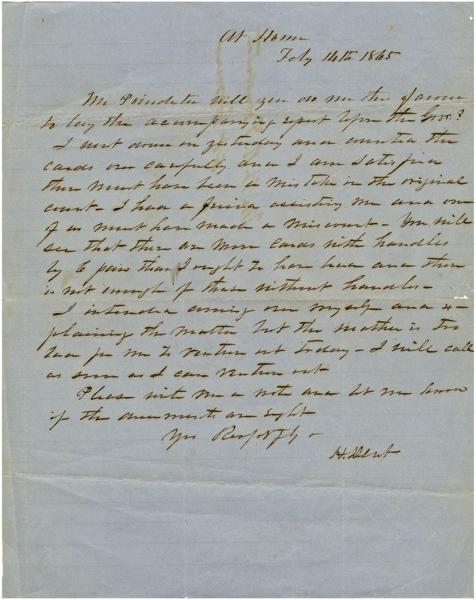 At Home
Feby 14th 1865
Mr Poindexter will you do me the favor
to lay the accompanying report before the Gov.?
I went down on yesterday and counted the
cards over carefully and I am satisfied
there must have been a mistake in the original
count - I had a friend assisting me and one
of us must have made a miscount - You will
see that there are more cards with handles
by 6 pairs than I ought to have had and there
is not enough of those without handles -
I intended coming over myself and ex-
plaining the matter but the weather is too
bad for me to venture out today - I will call
as soon as I can venture out
Please write me a note and let me know
if the are right
Yrs Respctfly -
H. Dent